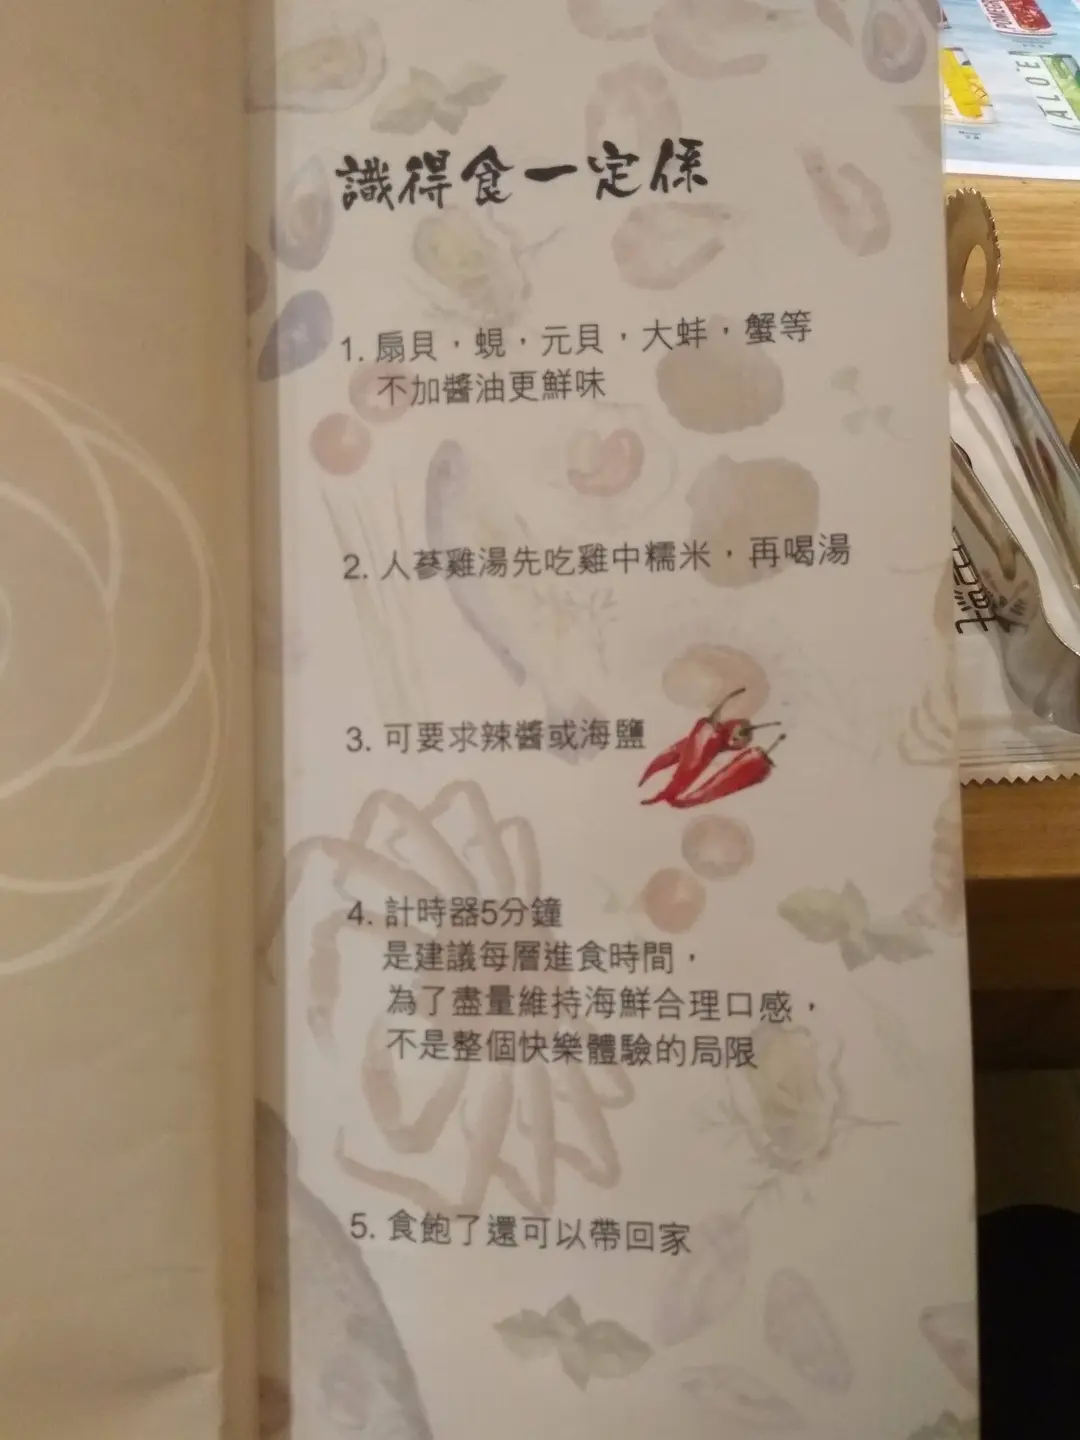 識得食一定係
1. 扇貝，蜆，元貝，大蚌，蟹等
不加醬油更鮮味
2. 人蔘雞湯先吃雞中糯米，再喝湯
3. 可要求辣醬或海鹽
4. 計時器5分鐘
是建議每層進食時間，
為了盡量維持海鮮合理口感，
不是整個快樂體驗的局限
5. 食飽了還可以帶回家
ALOE